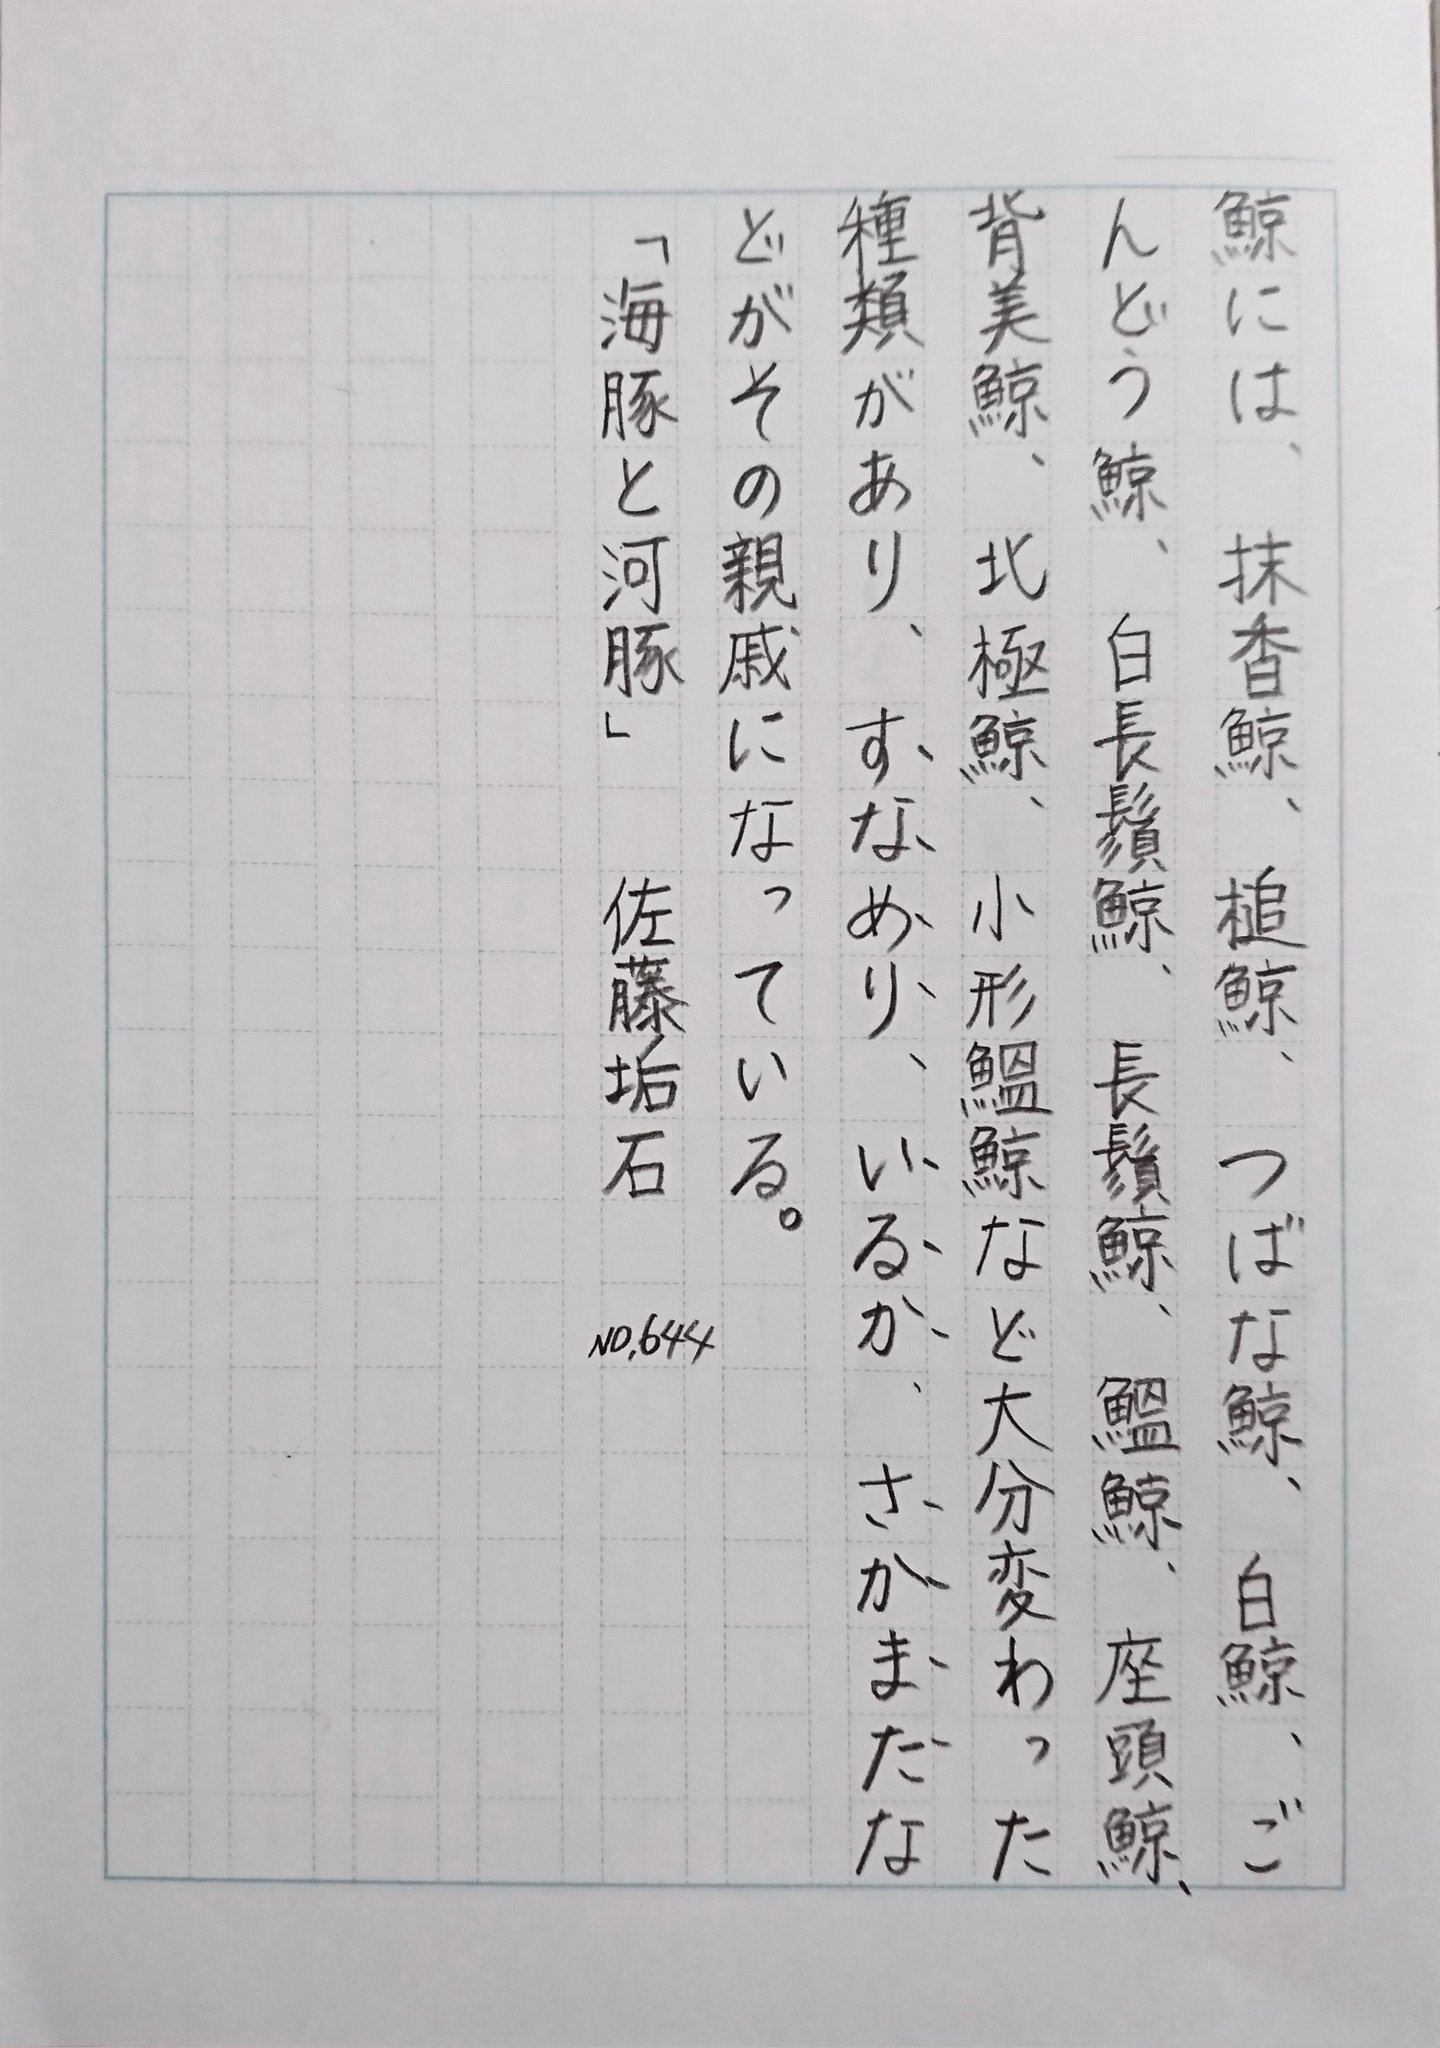 鯨には、抹香鯨、槌鯨、つばな鯨、白鯨、ご
んどう鯨、白長鬚鯨、長鬚鯨、鰮鯨、座頭鯨、
背美鯨、北極鯨、小形鰮鯨など大分変わった
種類があり、すなめり、いるか、さかまたな
どがその親戚になっている。
「海豚と河豚」 佐藤垢石
NO,644